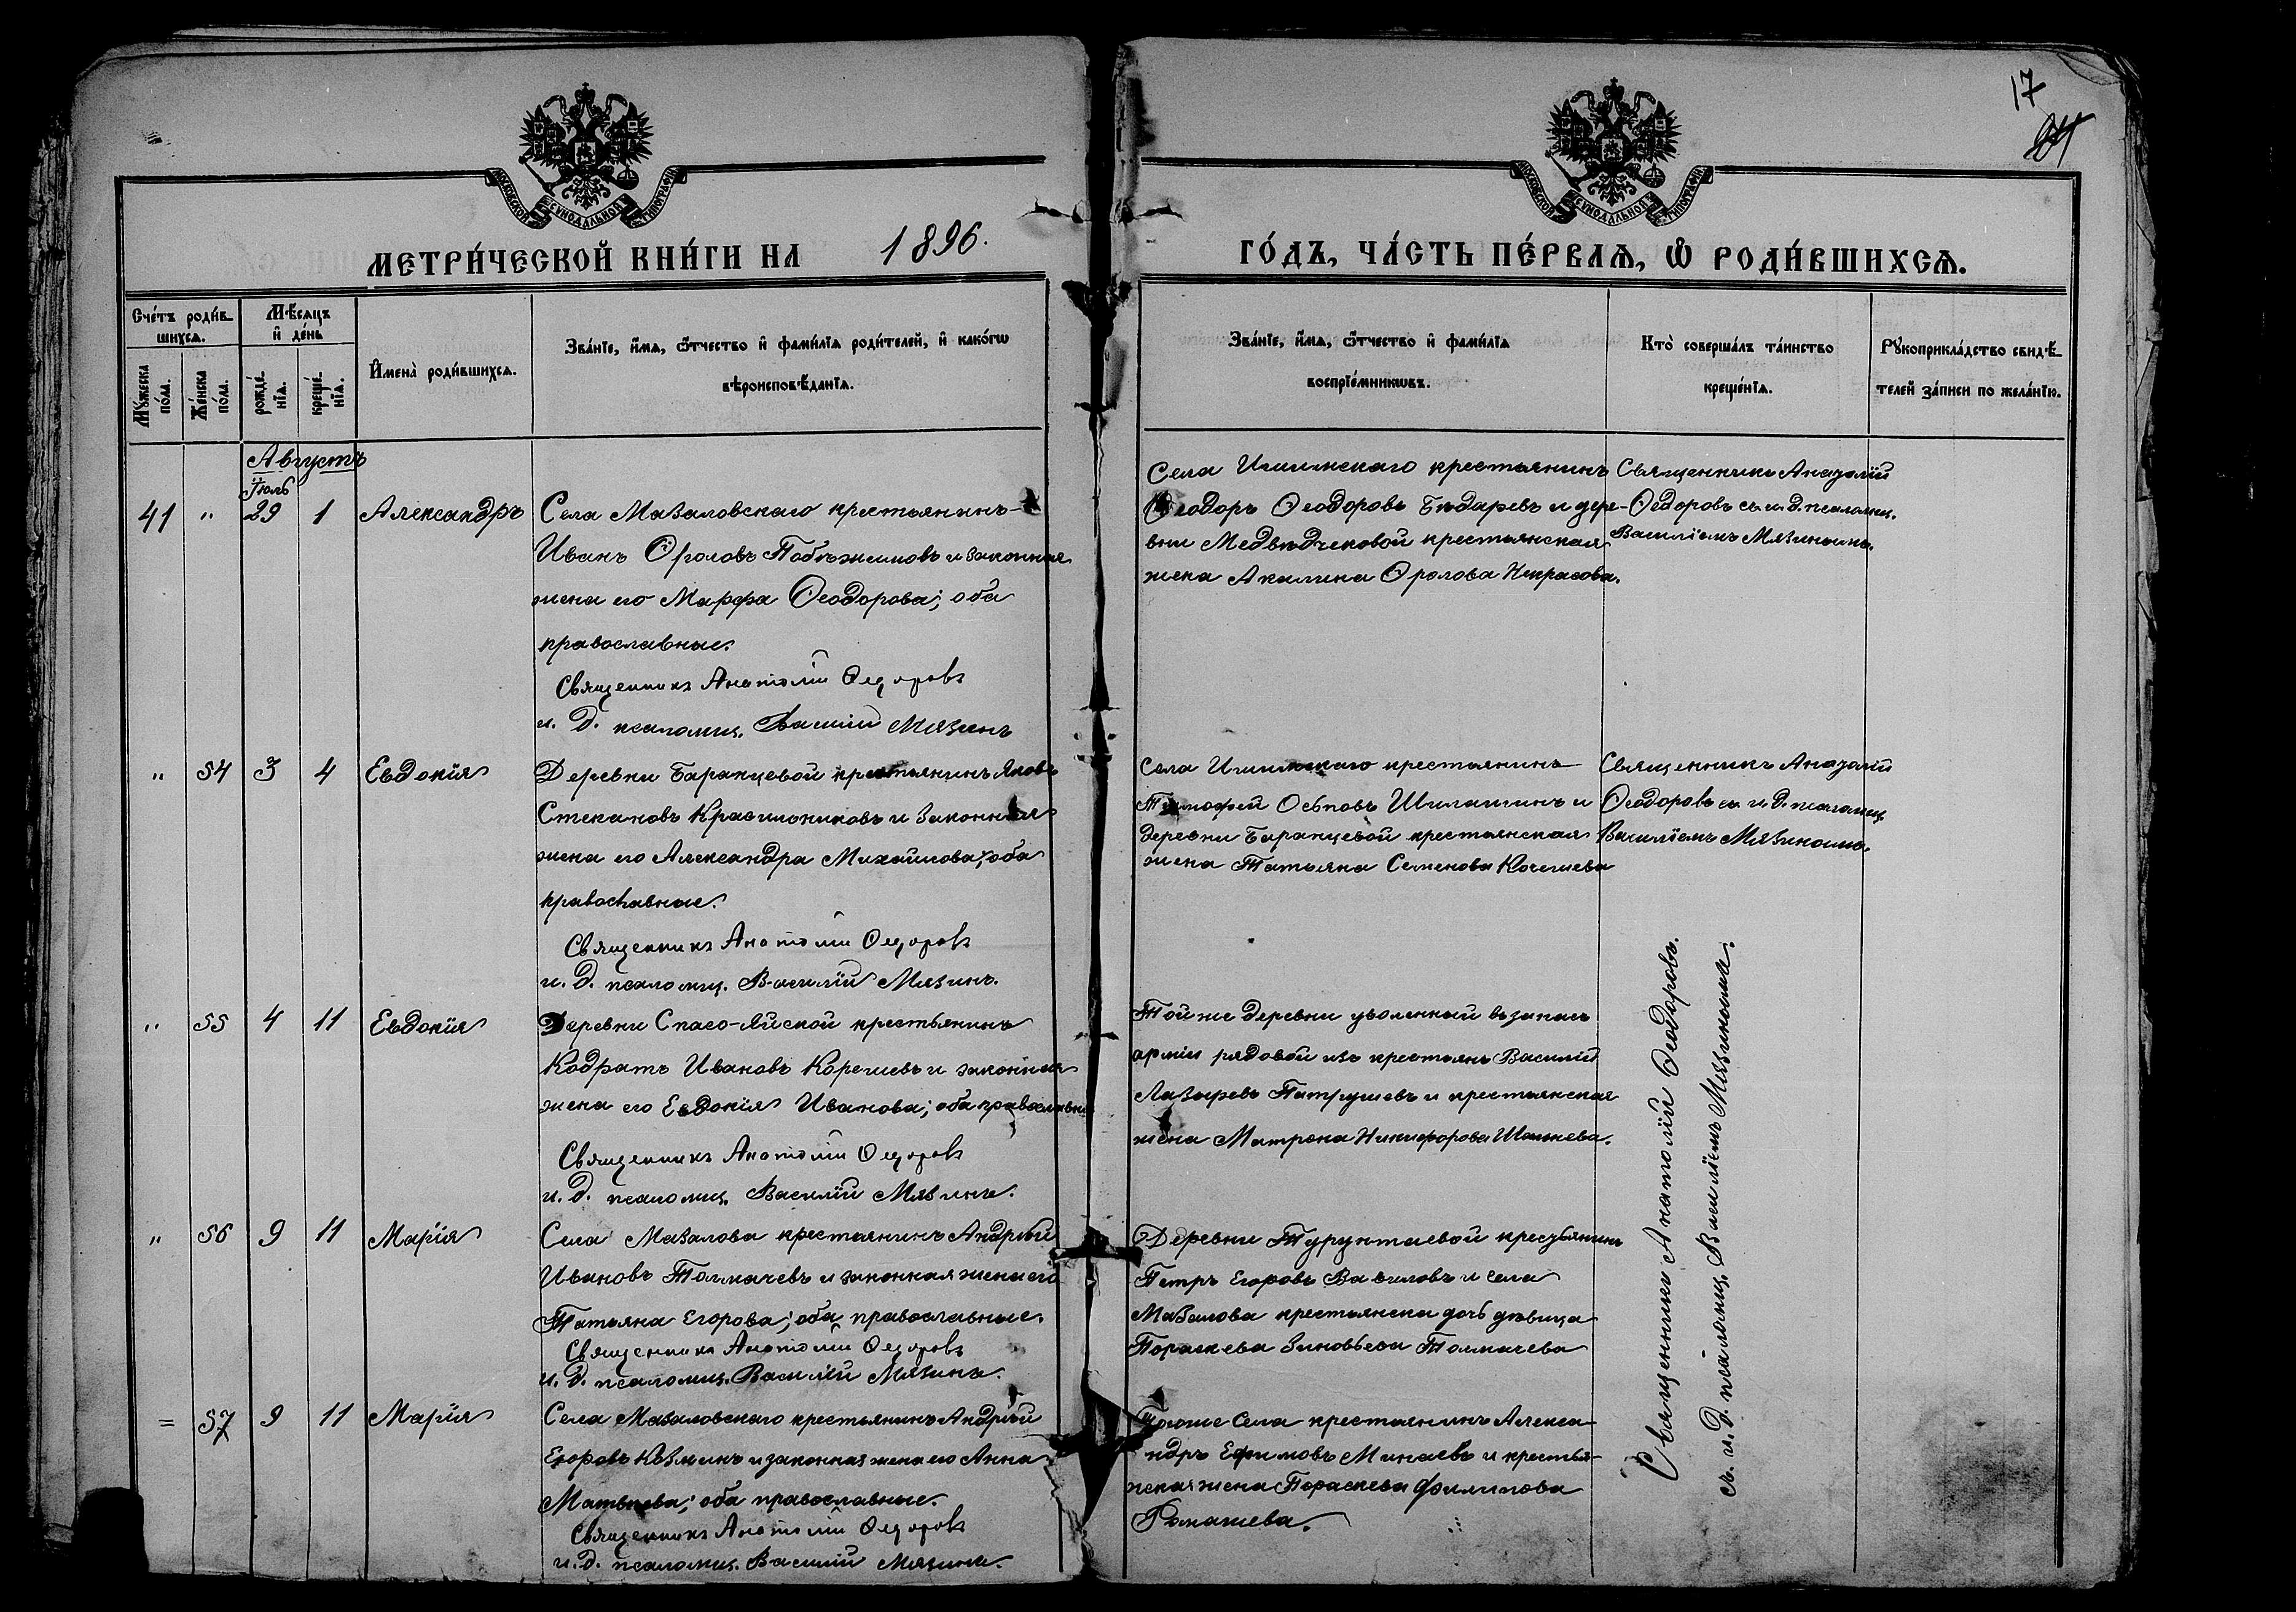 17
МОСКОВСКОЙ СѴНОДАЛЬНОЙ ТИПОГРАФІИ
МОСКОВСКОЙ СѴНОДАЛЬНОЙ ТИПОГРАФІИ
МЕТРИ́ЧЕСКОЙ КНИ́ГИ НА 1896.
ГО́ДЪ, ЧА́СТЬ ПЕ́РВАѦ, Ѡ РОДИ́ВШИХСѦ.
Сче́тъ роди́в-
шихсѧ.
Мѣ́сѧцъ
и҆ де́нь
Мꙋ́жеска
по́ла.
Же́нска
по́ла.
рожде́-
нїѧ.
креще́-
нїѧ.
И҆мена̀ роди́вшихсѧ.
Зва́нїе, и҆́мѧ, ѻ҆́тчество и҆ фами́лїѧ роди́телей, и҆ како́гѡ
вѣроисповѣ́данїѧ.
Зва́нїе, и҆́мѧ, ѻ҆́тчество и҆ фами́лїѧ
воспрїе́мникѡвъ.
Кто̀ соверша́лъ та́инство
креще́нїѧ.
Рꙋкоприкла́дство свидѣ́-
телей за́писи по жела́нїю.
Августъ
Іюль
41 " 29 1 Александръ
Села Мазаловскаго крестьянинъ
Иванъ Ѳроловъ Побѣжимовъ и законная
жена его Марфа Ѳеодорова; оба
православные.
Священникъ Анатолій Ѳедоровъ
и. д. псаломщ. Василій Мязинъ
Села Ишимскаго крестьянинъ
Ѳеодоръ Ѳеодоровъ Бѣдаревъ и дере-
вни Медвѣдчековой крестьянская
жена Акилина Ѳролова Некрасова.
Священникъ Анатолій
Ѳеодоровъ съ и. д. псаломщ.
Василіемъ Мязинымъ.
" 54 3 4 Евдокія
Деревни Баранцевой крестьянинъ Яковъ
Степановъ Красильниковъ и законная
жена его Александра Михайлова; оба
православные.
Священникъ Анатолій Ѳедоровъ
и. д. псаломщ. Василій Мязинъ.
Села Ишимскаго крестьянинъ
Тимофей Осиповъ и
деревни Баранцевой крестьянская
жена Татьяна Семенова
Священникъ Анатолій
Ѳеодоровъ съ и. д. псаломщ.
Василіемъ Мязинымъ.
" 55 4 11 Евдокія
Деревни Спасо-Яйской крестьянинъ
Кодратъ Ивановъ и законная
жена его Евдокія Иванова; оба православные
Священникъ Анатолій Ѳедоровъ
и. д. псаломщ. Василій Мязинъ.
Той же деревни уволенный въ запасъ
арміи рядовой изъ крестьянъ Василій
Лазыревъ Патрушевъ и крестьянская
жена Матрона Никифорова
Священникъ Анатолій Ѳеодоровъ.
съ и. д. псаломщ. Василіемъ Мязинымъ.
" 56 9 11 Марія
Села Мазалова крестьянинъ Андрей
Ивановъ Толмачевъ и законная жена его
Татьяна Егорова; оба православные.
Священникъ Анатолій Ѳедоровъ
и. д. псаломщ. Василій Мязинъ.
Деревни Турунтаевой крестьянинъ
Петръ Егоровъ Вавиловъ и села
Мазалова крестьянска дочь дѣвица
Параскева Зиновьева Толмачева
= 57 9 11 Марія
Села Мазаловскаго крестьянинъ Андрей
Егоровъ Козминъ и законная жена его Анна
Матвѣева; оба православные.
Священникъ Анатолій Ѳедоровъ
и. д. псаломщ. Василій Мязинъ.
Тогоже Села крестьянинъ Алекса-
ндръ Ефимовъ Минаевъ и крестья-
нская жена Параскева Филипова
Ромашева.